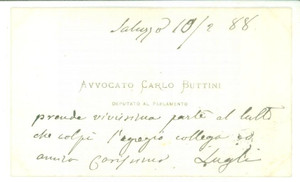 Saluzzo 10/2 88.
AVVOCATO CARLO BUTTINI
DEPUTATO AL PARLAMENTO
prende vivissima parte al lutto
che colpì l'egregio collega ed
amico carissimo